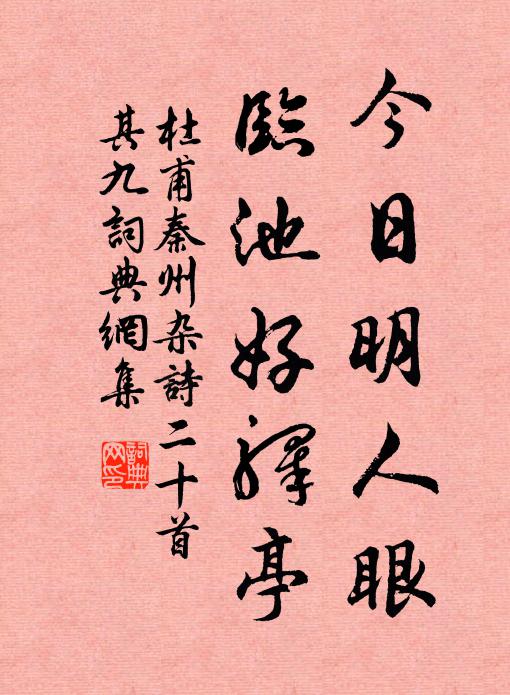 今日明人眼
臨池好驛亭
杜甫秦州杂詩二十首
其九詞典網集
詞典网印